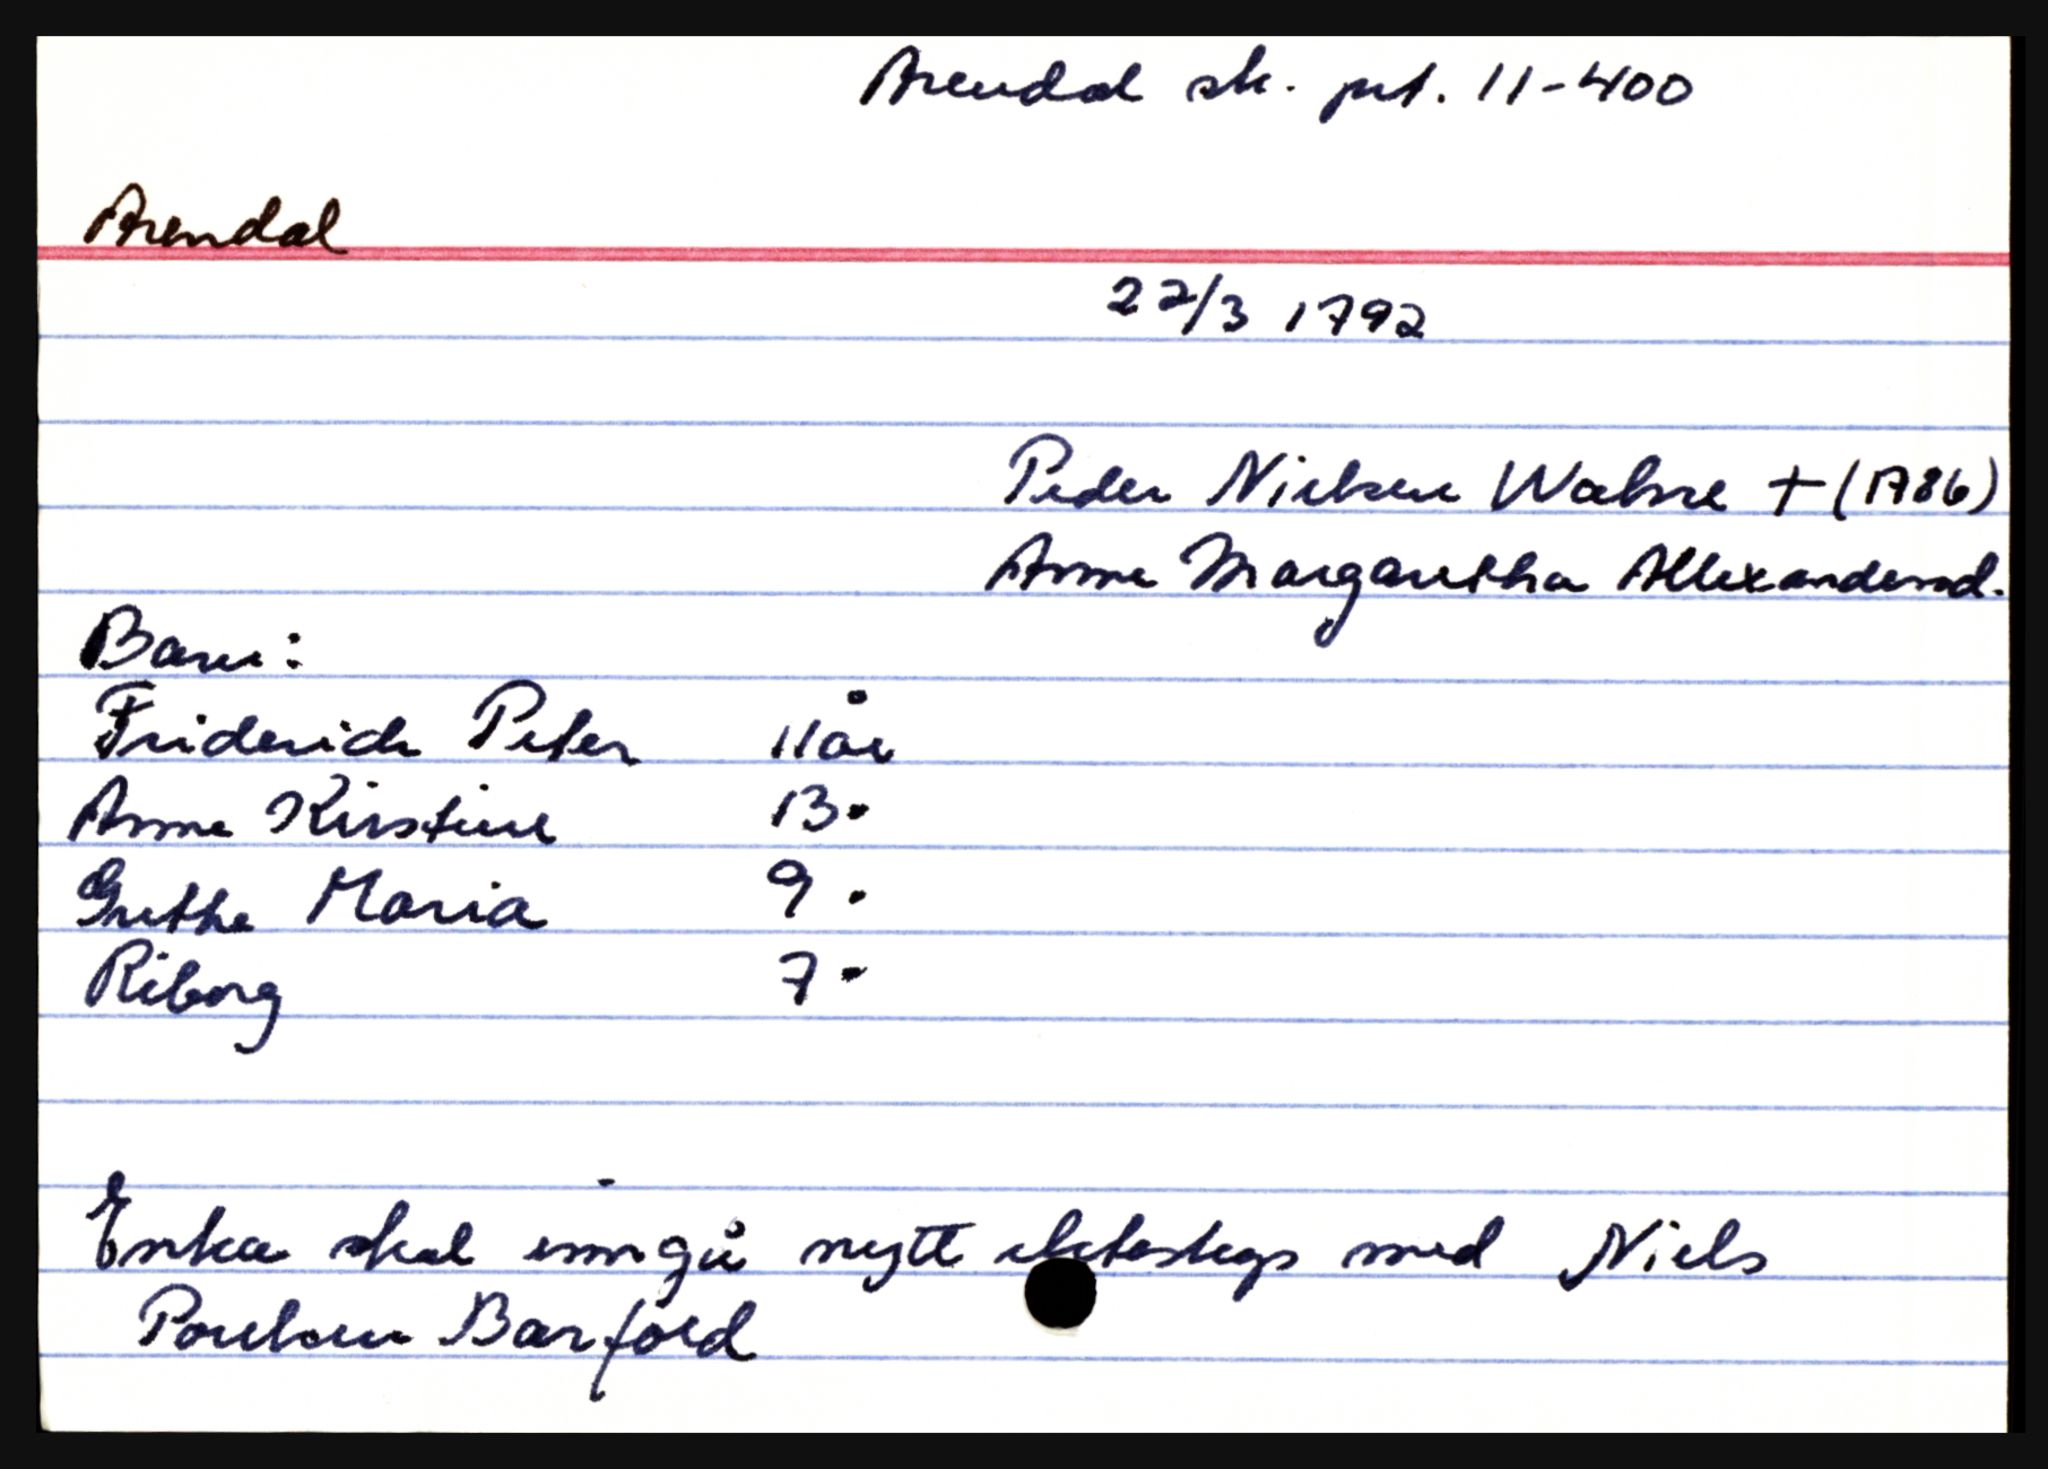 Arendal sk. prt. 11-400
Arendal
22/3 1792
Peder Nielsen Wahne + (1786)
Anne Margaretha Allexandersd.
Barn:
Friderich Peter 11 år
Anne Kirstine 13 "
Grethe Maria 9 "
Riborg 7 "
Enka skal inngå nytt ekteskap med Niels
Poulsen Barfoed